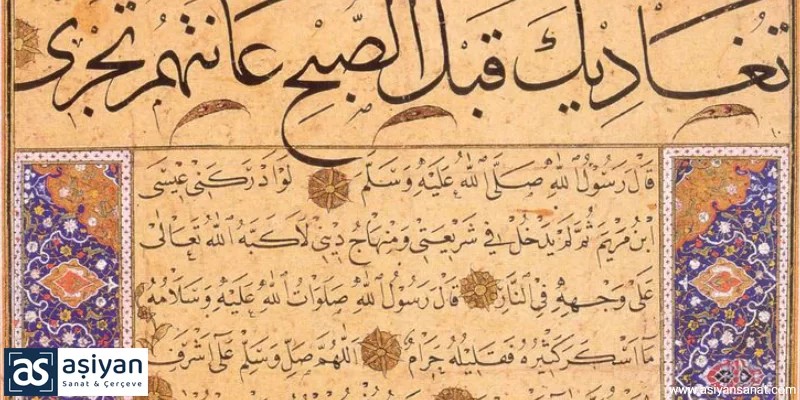 تُغَادِيكَ قَبْلَ الصُّبْحِ عَانَتُهُمْ تَجْرِى
قَالَ رَسُولُ اللهِ صَلَّى اللهُ عَلَيْهِ وَسَلَّمَ لَوْ اَدْرَكَنِى عِيْسَى
ابْنُ مَرْيَمَ ثُمَّ لَمْ يَدْخُلْ فِى شَرِيعَتِى وَمِنْهَاجُ دِينِى لَاَكَبَّهُ اللهُ تَعَالٰى
عَلٰى وَجْهِهِ فِى النَّارِ قَالَ رَسُولُ اللهِ صَلَوَاتُ اللهِ عَلَيْهِ وَسَلَامُهُ
مَا اَسْكَرَ كَثِيْرُهُ فَقَلِيْلُهُ حَرَامٌ اَللّٰهُمَّ صَلِّ وَسَلِّمْ عَلٰى اَشْرَفِ
as aşiyan
Sanat & Çerçeve
www.asiyansanat.com